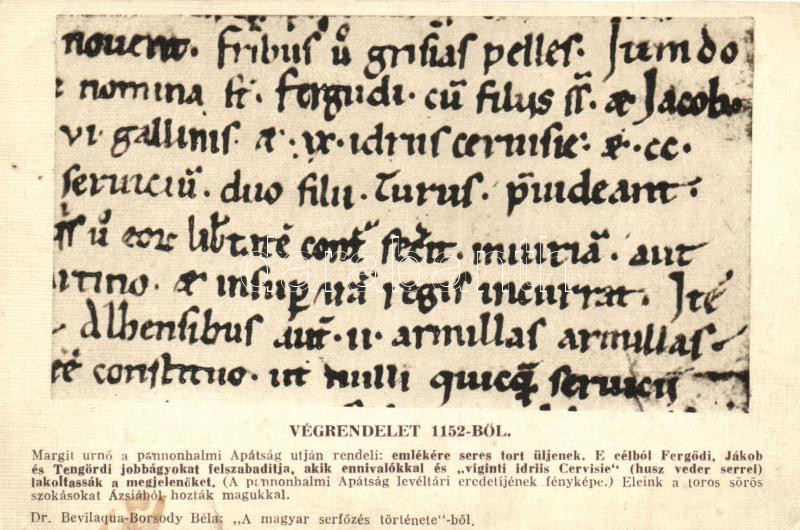 nouent. fribus u° grisias pelles. Jum do
nomina st. fergudi. cū filiis ss. æ Jacob.
vi gallinis. æ. ix. idriis ceruisie. æ. cc.
seruiciū. duo filii. Turus. puideant.
libtatē aut
rtino. æ insup irā regis incurrat. Itē
Albensibus aut. ii. armillas armillas.
constituo. ut nulli quicq seruicii
darabanth
VÉGRENDELET 1152-BŐL.
Margit urnő a pannonhalmi Apátság utján rendeli: emlékére seres tort üljenek. E célból Fergődi, Jákób
és Tengördi jobbágyokat felszabaditja, akik ennivalókkal és „viginti idriis Cervisie“ (husz veder serrel)
lakoltassák a megjelenőket. (A pannonhalmi Apátság levéltári eredetijének fényképe.) Eleink a toros sörös
szokásokat Ázsiából hozták magukkal.
Dr. Bevilaqua-Borsody Béla: „A magyar serfőzés története“-ből.